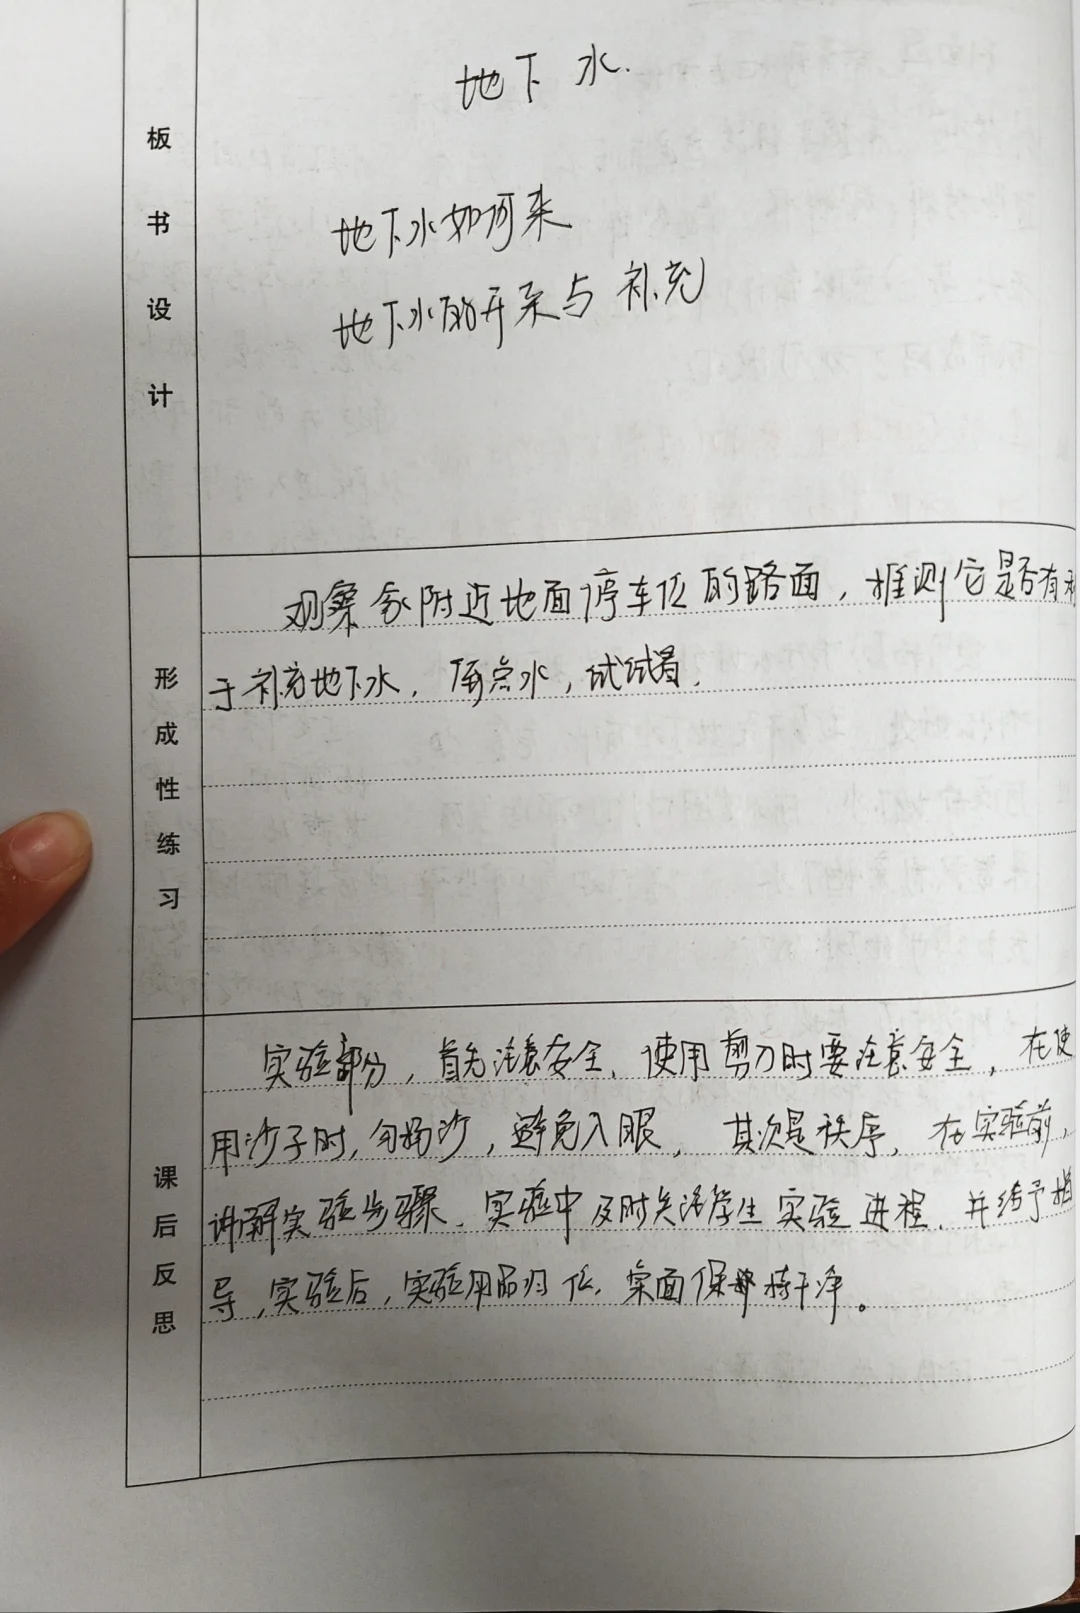 板书设计
地下水.
地下水如何来
地下水的开采与补充
形成性练习
观察家附近地面停车位的路面，推测它是否有利
于补充地下水，用点水，试试看.
课后反思
实验部分，首先注意安全、使用剪刀时要注意安全，在使
用沙子时，勿扬沙，避免入眼，其次是秩序，在实验前，
讲解实验步骤、实验中及时关注学生实验进程，并给予指
导，实验后，实验用品归位，桌面保持干净。